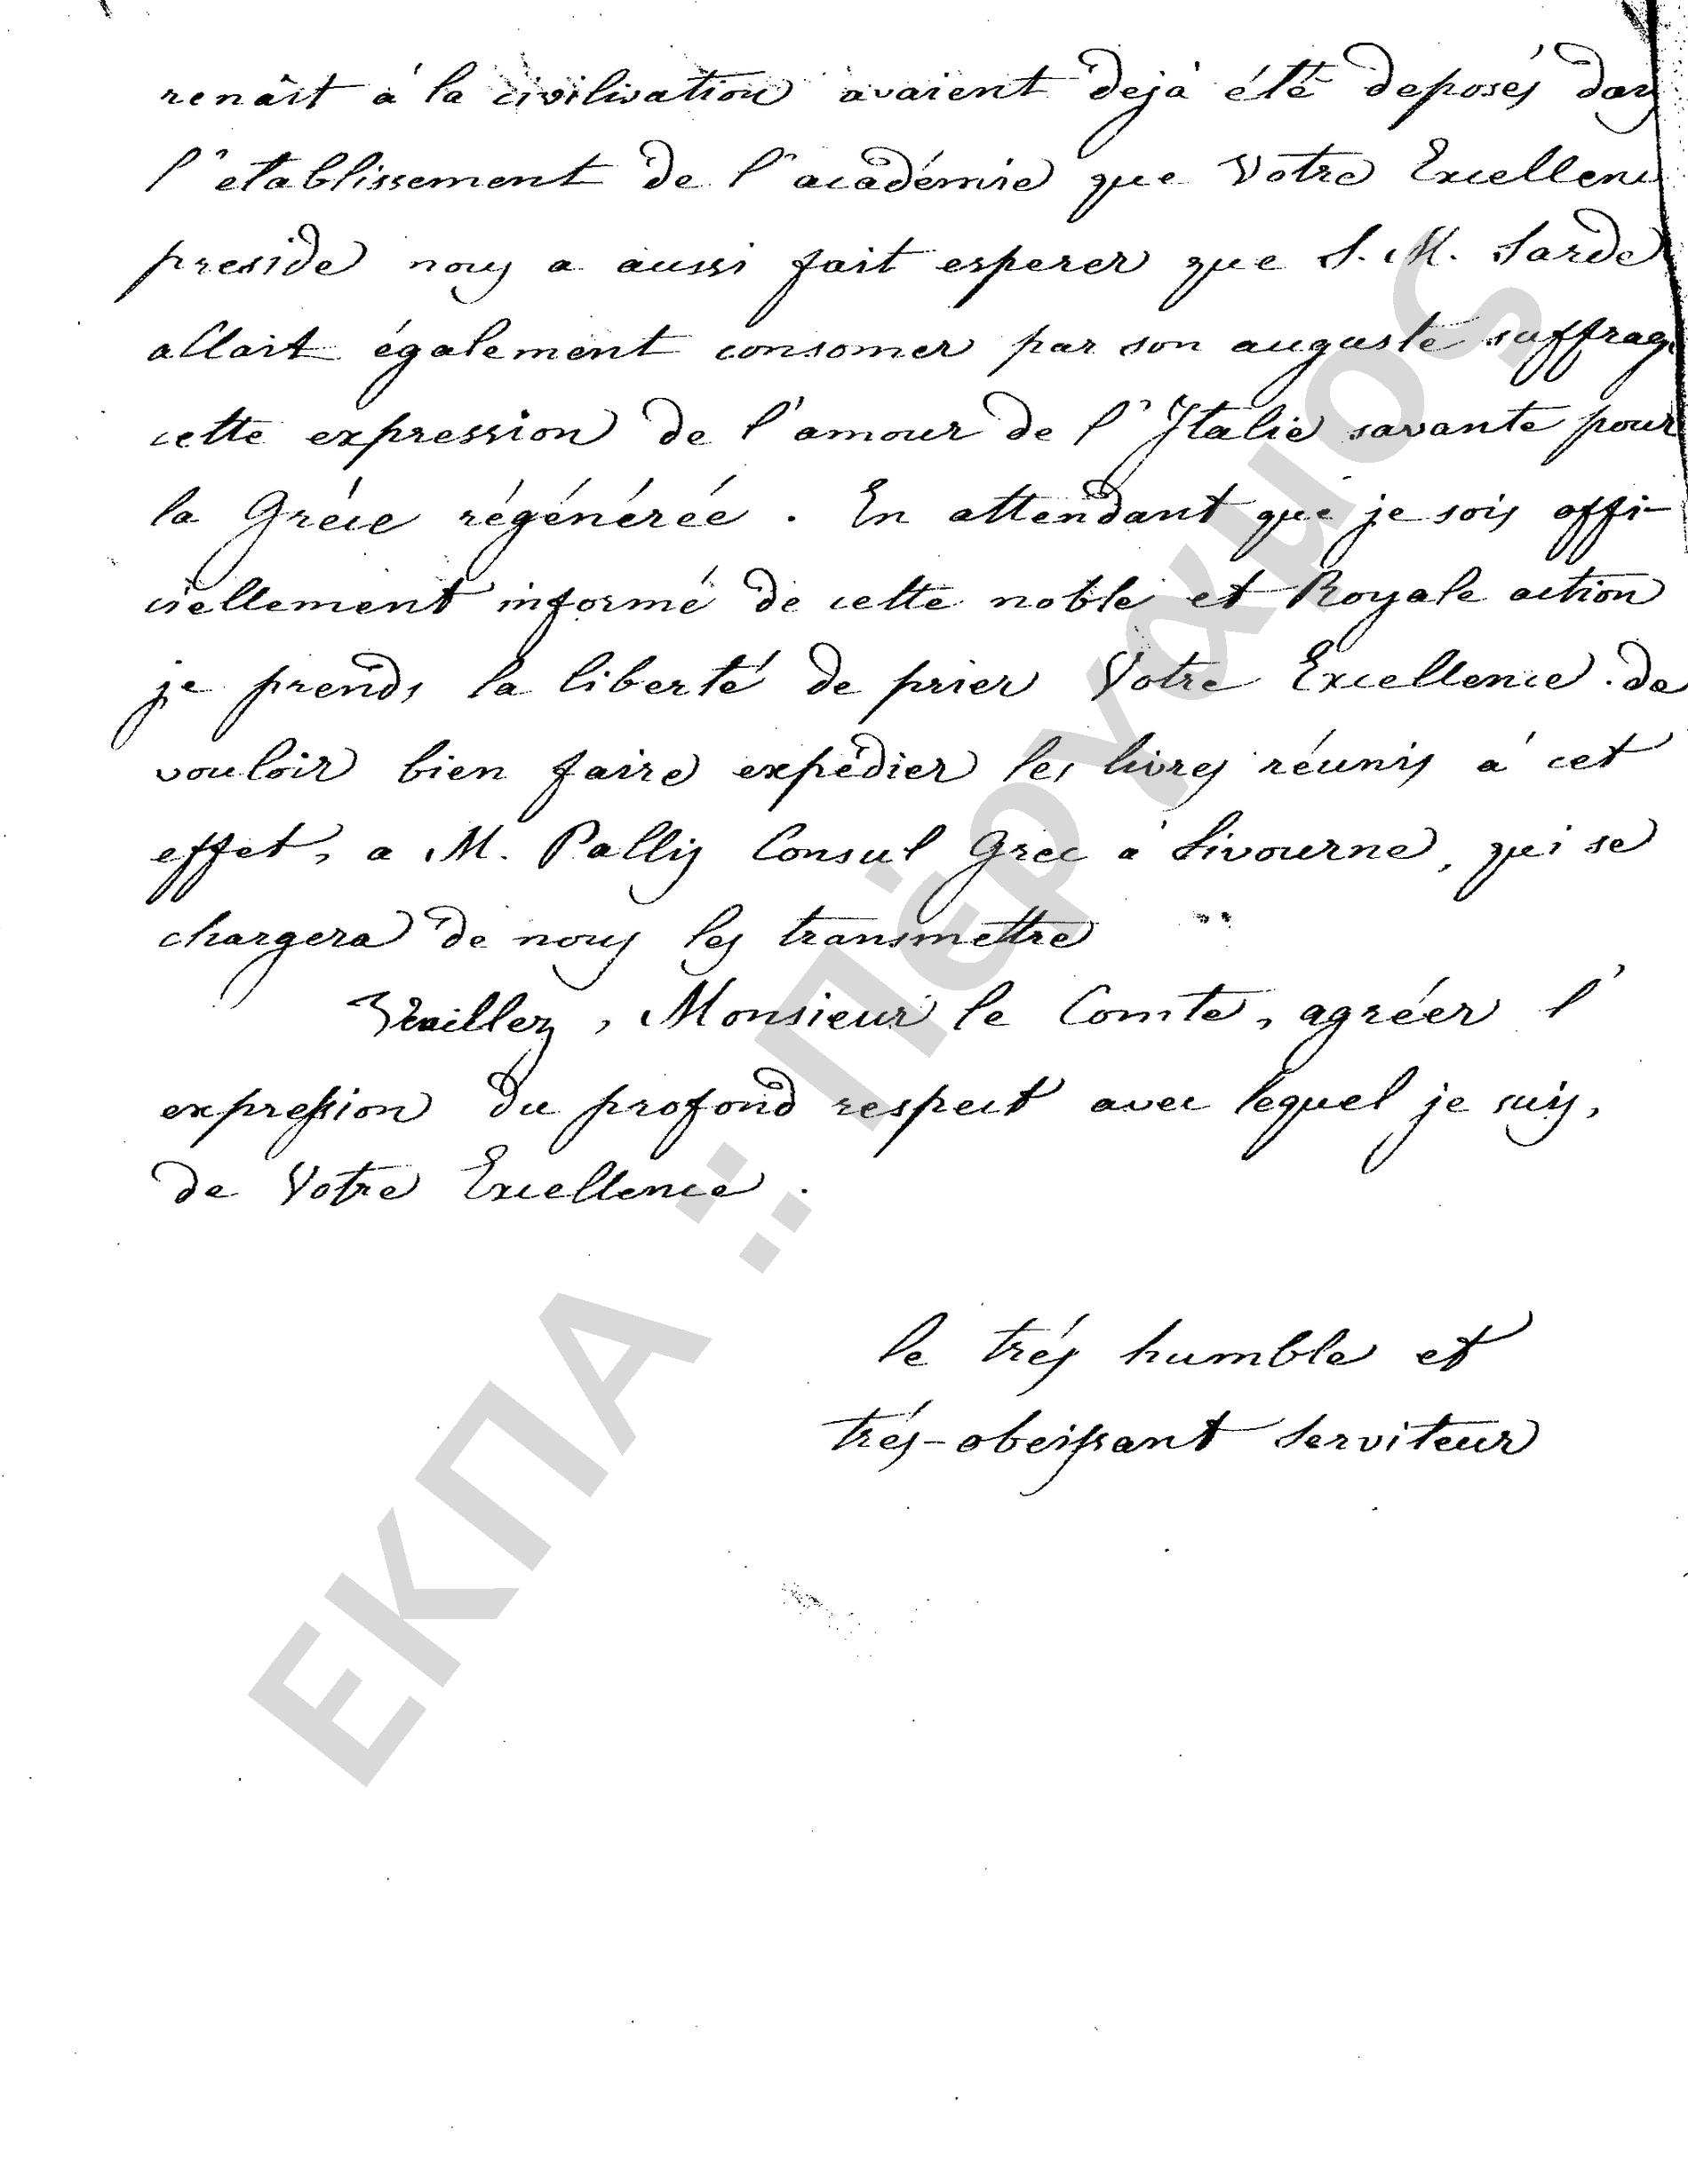 renâit à la civilisation avaient dejà été deposés dans
l'etablissement de l'académie que Votre Excellenc
preside nous a aussi fait esperer que S. M. Sarde
allait également consomer par son auguste suffrage
cette expression de l'amour de l'Italie savante pour
la Gréce régénérée. En attendant que je sois offi-
ciellement informé de cette noble et Royale action
je prends la liberté de prier Votre Excellence de
vouloir bien faire expédier les livres réunis à cet
effet, a M. Pallis Consul Grec à Livourne, qui se
chargera de nous les transmettre
Veuillez, Monsieur le Comte, agréer l'
expression du profond respect avec lequel je suis,
de Votre Excellence.
le trés humble et
trés-obeissant serviteur
ΕΚΠΑ :: Πέργαμος